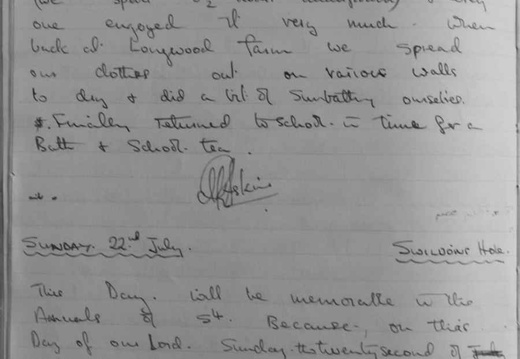 one enjoyed it very much. When
back at Longwood farm we spread
our clothes out on various walls
to dry & did a bit of Sunbathing ourselves.
Finally returned to school in time for a
Bath & School tea.
SUNDAY. 22nd July. SWILDONS HOLE.
This Day. will be memorable in the
Annuals of St. Because, on this
Day of our Lord. Sunday the twenty second of